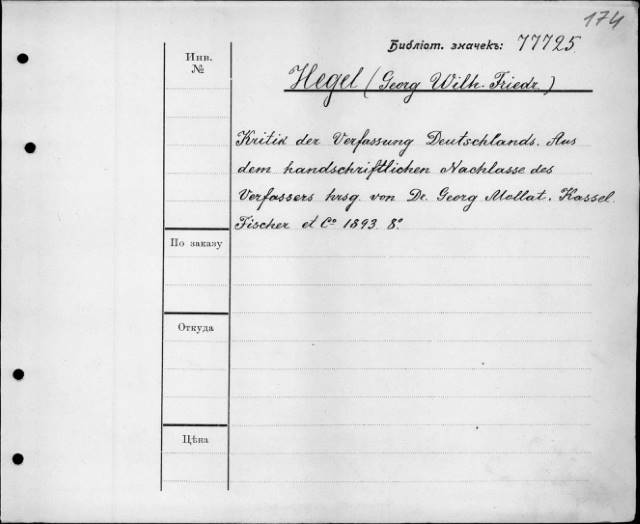 174
Библіот. значекъ: 77725.
Инв.
№
Hegel (Georg Wilh. Friedr.)
Kritik der Verfassung Deutschlands. Aus
dem handschriftlichen Nachlasse des
Verfassers hrsg. von Dr. Georg Mollat. Kassel.
Fischer et Co 1893. 8º.
По заказу
Откуда
Цѣна